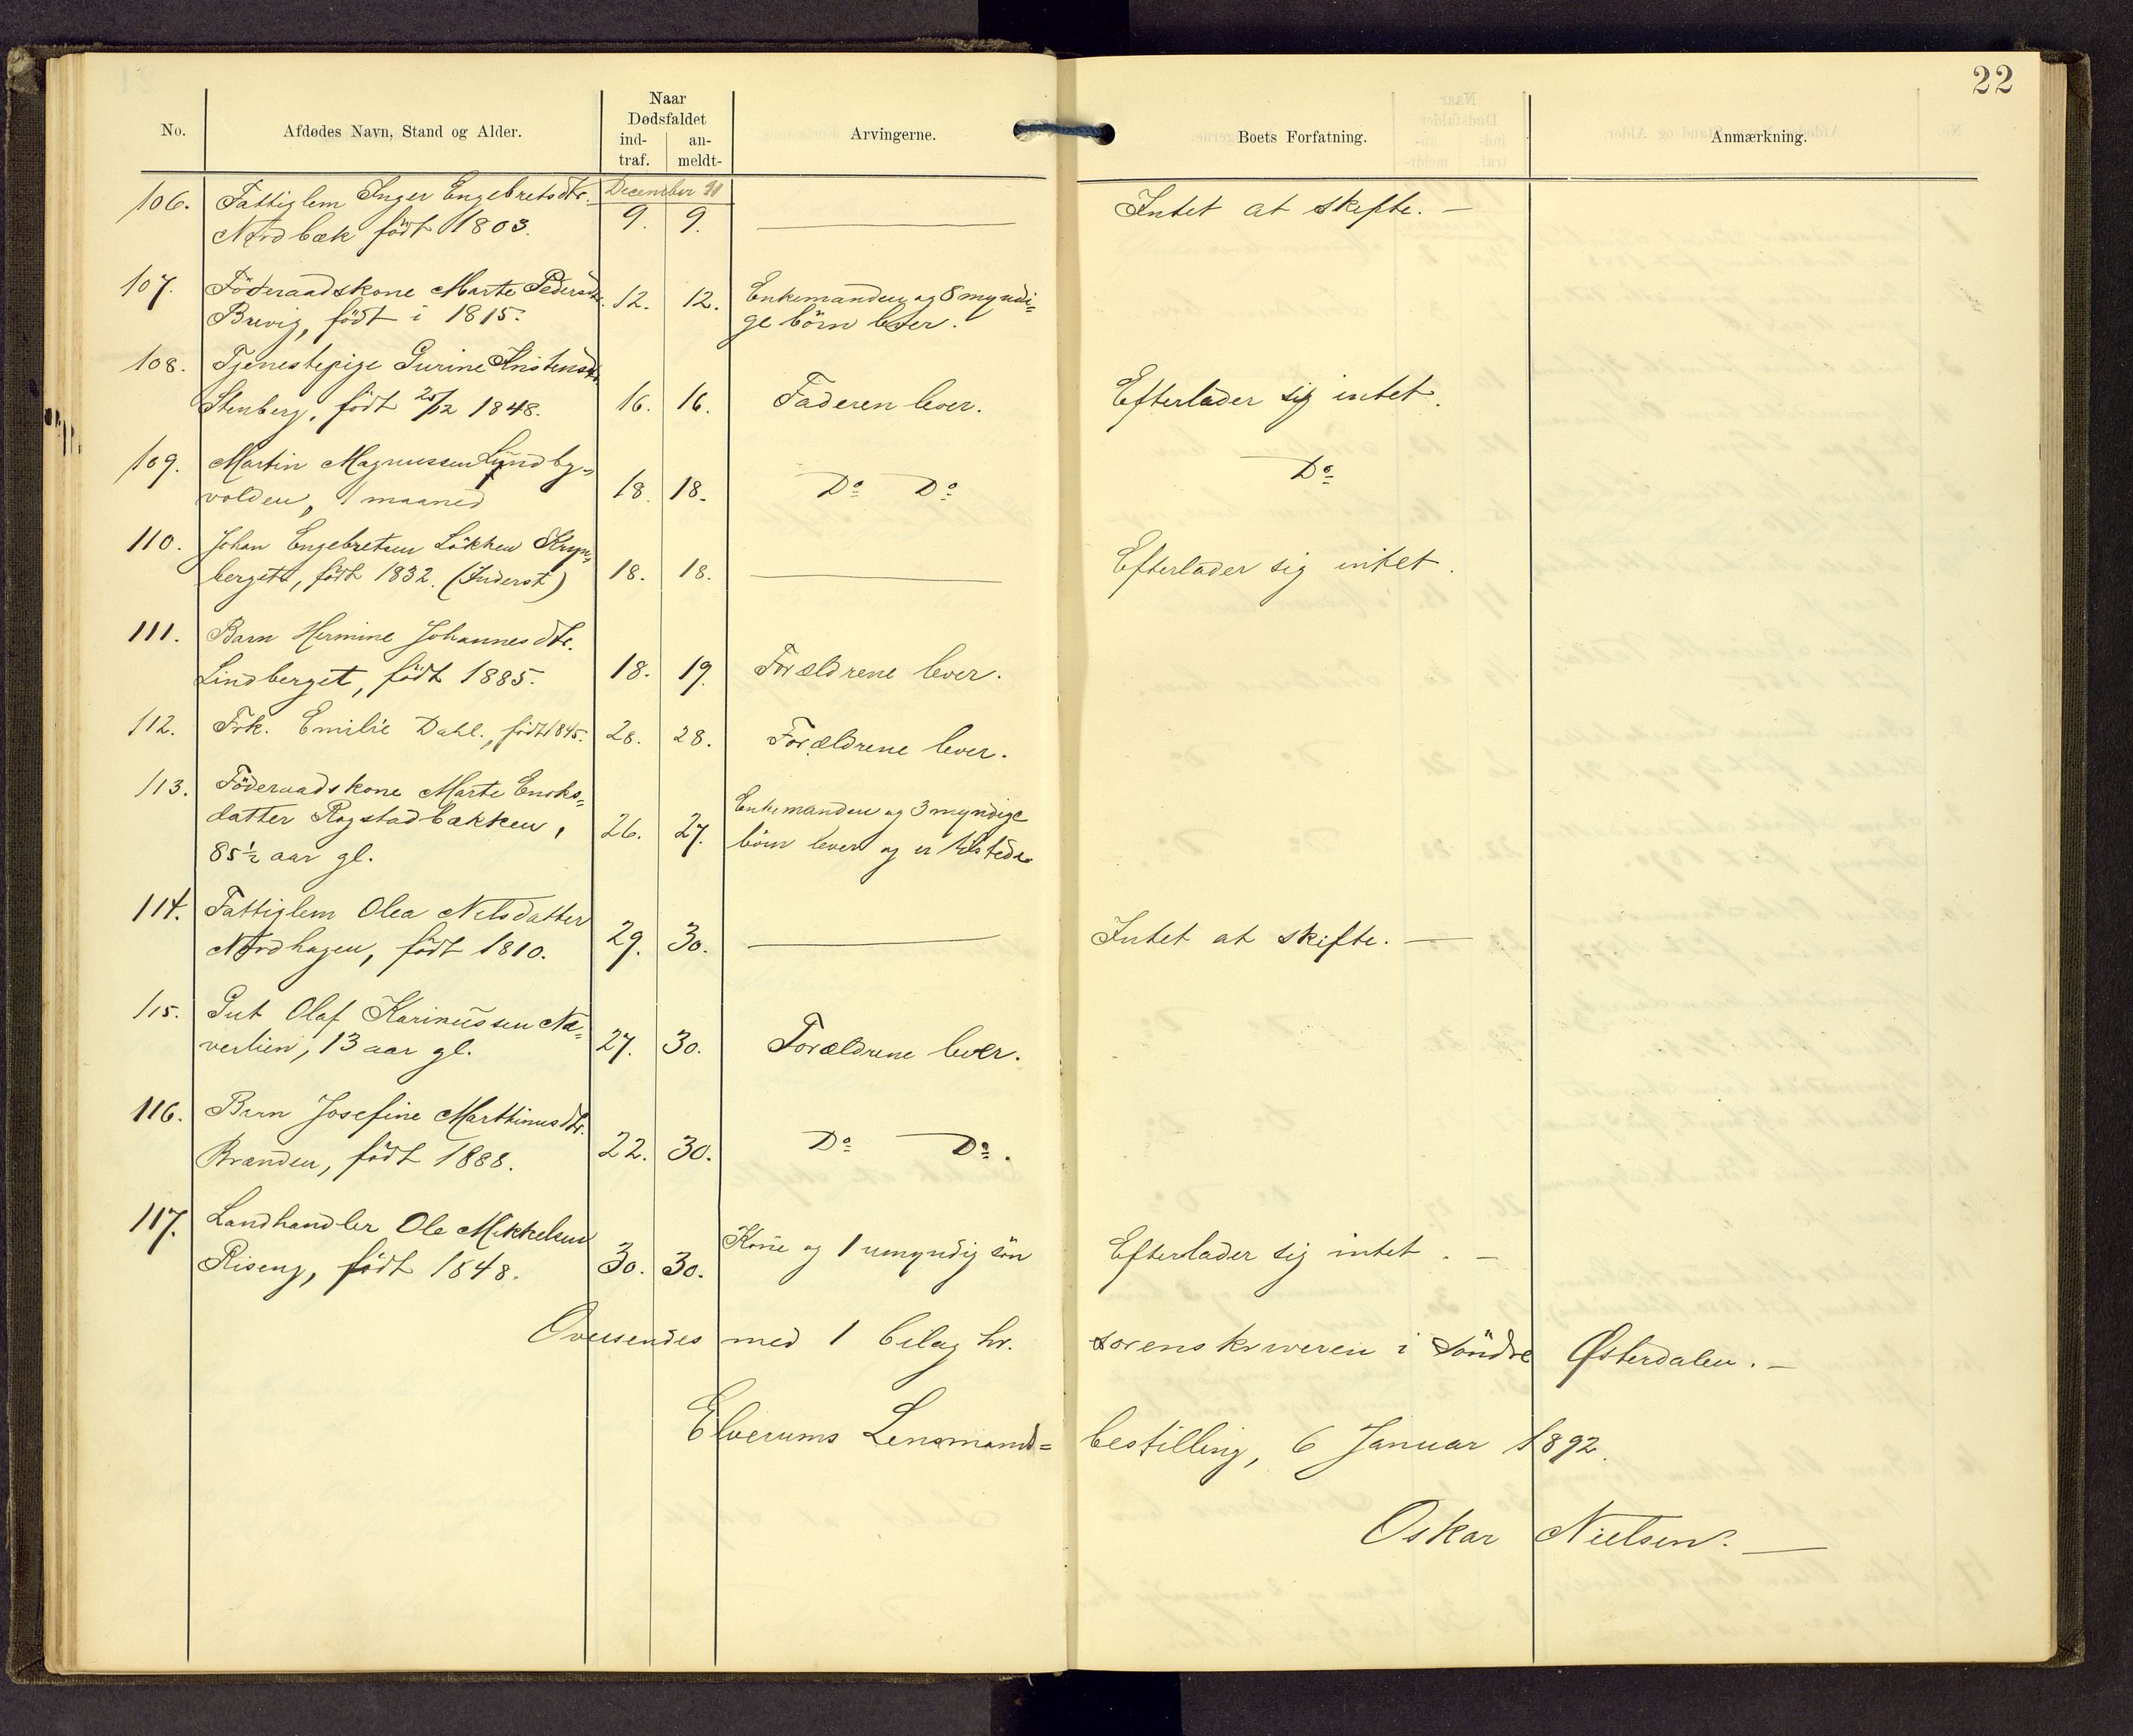 22
No.
Afdødes Navn, Stand og Alder.
Naar
Dødsfaldet
ind-
traf.
an-
meldt-
Arvingerne.
Boets Forfatning.
Anmærkning.
December 91
106. Fattiglem Inger Engebretsdtr.
Nordbæk født 1803. 9. 9. Intet at skifte. —
107. Föderaadskone Marte Pedersdtr. 12. 12. Enkemanden og 8 myndi=
Brevig, födt i 1815. ge börn lever.
108. Tjenestepige Gurine Kristensdtr.
Stenberg, födt 25/12 1848. 16. 16. Faderen lever. Efterlader sig intet.
109. Martin Magnussen Lundby=
volden, 1 maaned 18. 18. Do Do Do
110. Johan Engebretsen Lökken
berget, födt 1832. (Inderst) 18. 18. Efterlader sig intet.
111. Barn Hermine Johannesdtr.
Lindberget, födt 1885. 18. 19. Forældrene lever.
112. Frk. Emilie Dahl., födt 1845. 28. 28. Forældrene lever.
113. Föderaadskone Marte Enoks=
datter Rogstadbækken, 26. 27. Enkemanden og 3 myndige
85½ aar gl. börn lever og er tilstede
114. Fattiglem Olea Nilsdatter
Nordhagen, födt 1810. 29. 30. Intet at skifte. —
115. Gut Olaf Karinussen Næ=
verlien, 13 aar gl. 27. 30. Forældrene lever.
116. Barn Josefine Marthinusdtr.
Brænden, födt 1888. 22. 30. Do Do.
117. Landhandler Ole Mikkelsen
Riseng, födt 1848. 30. 30. Kone og 1 umyndig sön Efterlader sig intet. —
Oversendes med 1 bilag hr. sorenskriveren i söndre Østerdalen. —
Elverums Lensmands= bestilling, 6 Januar 1892.
Oskar Nielsen. —